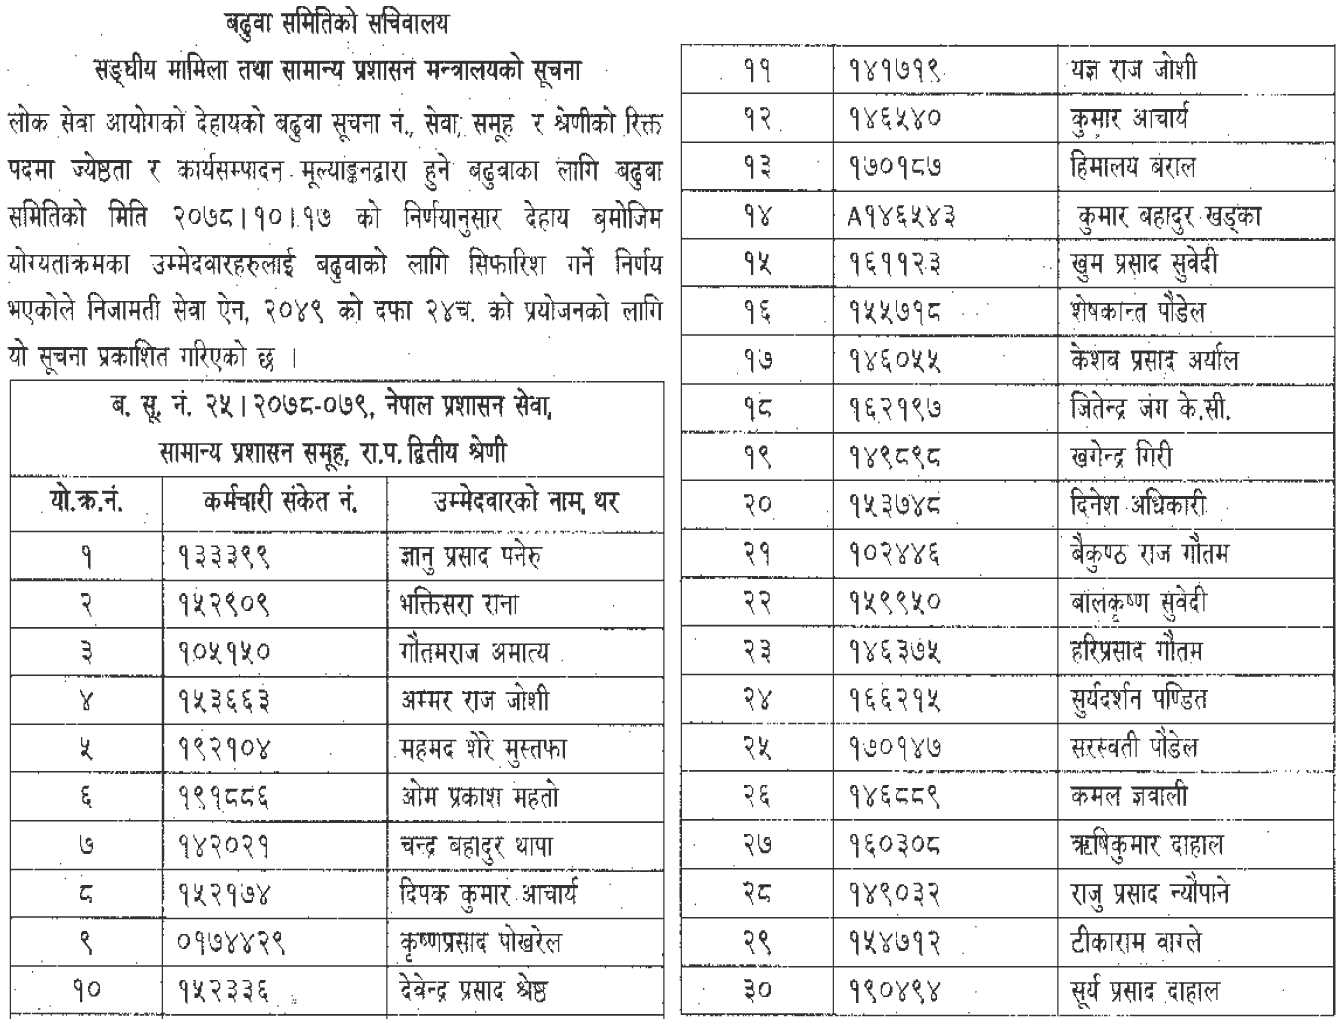 बढुवा समितिको सचिवालय
सङ्घीय मामिला तथा सामान्य प्रशासन मन्त्रालयको सूचना
लोक सेवा आयोगको देहायको बढुवा सूचना नं., सेवा, समूह र श्रेणीको रिक्त
पदमा ज्येष्ठता र कार्यसम्पादन मूल्याङ्कनद्वारा हुने बढुवाका लागि बढुवा
समितिको मिति २०७८।१०।१७ को निर्णयानुसार देहाय बमोजिम
योग्यताक्रमका उम्मेदवारहरुलाई बढुवाको लागि सिफारिश गर्ने निर्णय
भएकोले निजामती सेवा ऐन, २०४९ को दफा २४च. को प्रयोजनको लागि
यो सूचना प्रकाशित गरिएको छ ।
ब. सू. नं. २५।२०७८-०७९, नेपाल प्रशासन सेवा,
सामान्य प्रशासन समूह, रा.प. द्वितीय श्रेणी
यो.क्र.नं. कर्मचारी संकेत नं. उम्मेदवारको नाम, थर
१ १३३३९९ ज्ञानु प्रसाद पनेरु
२ १५२९०९ भक्तिसरा राना
३ १०५१५० गौतमराज अमात्य
४ १५३६६३ अम्मर राज जोशी
५ १९२१०४ महमद शेरे मुस्तफा
६ १९१८८६ ओम प्रकाश महतो
७ १४२०२१ चन्द्र बहादुर थापा
८ १५२१७४ दिपक कुमार आचार्य
९ ०१७४४२९ कृष्णप्रसाद पोखरेल
१० १५२३३६ देवेन्द्र प्रसाद श्रेष्ठ
११ १४१७१९ यज्ञ राज जोशी
१२ १४६५४० कुमार आचार्य
१३ १७०१८७ हिमालय बराल
१४ A१४६५४३ कुमार बहादुर खड्का
१५ १६११२३ खुम प्रसाद सुवेदी
१६ १५५७१८ शेषकान्त पौडेल
१७ १४६०५५ केशव प्रसाद अर्याल
१८ १६२१९७ जितेन्द्र जंग के.सी.
१९ १४९८९८ खगेन्द्र गिरी
२० १५३७४८ दिनेश अधिकारी
२१ १०२४४६ बैकुण्ठ राज गौतम
२२ १५९९५० बालकृष्ण सुवेदी
२३ १४६३७५ हरिप्रसाद गौतम
२४ १६६२१५ सुर्यदर्शन पण्डित
२५ १७०१४७ सरस्वती पौडेल
२६ १४६८८९ कमल ज्ञवाली
२७ १६०३०८ ऋषिकुमार दाहाल
२८ १४९०३२ राजु प्रसाद न्यौपाने
२९ १५४७१२ टीकाराम वाग्ले
३० १९०४९४ सूर्य प्रसाद दाहाल